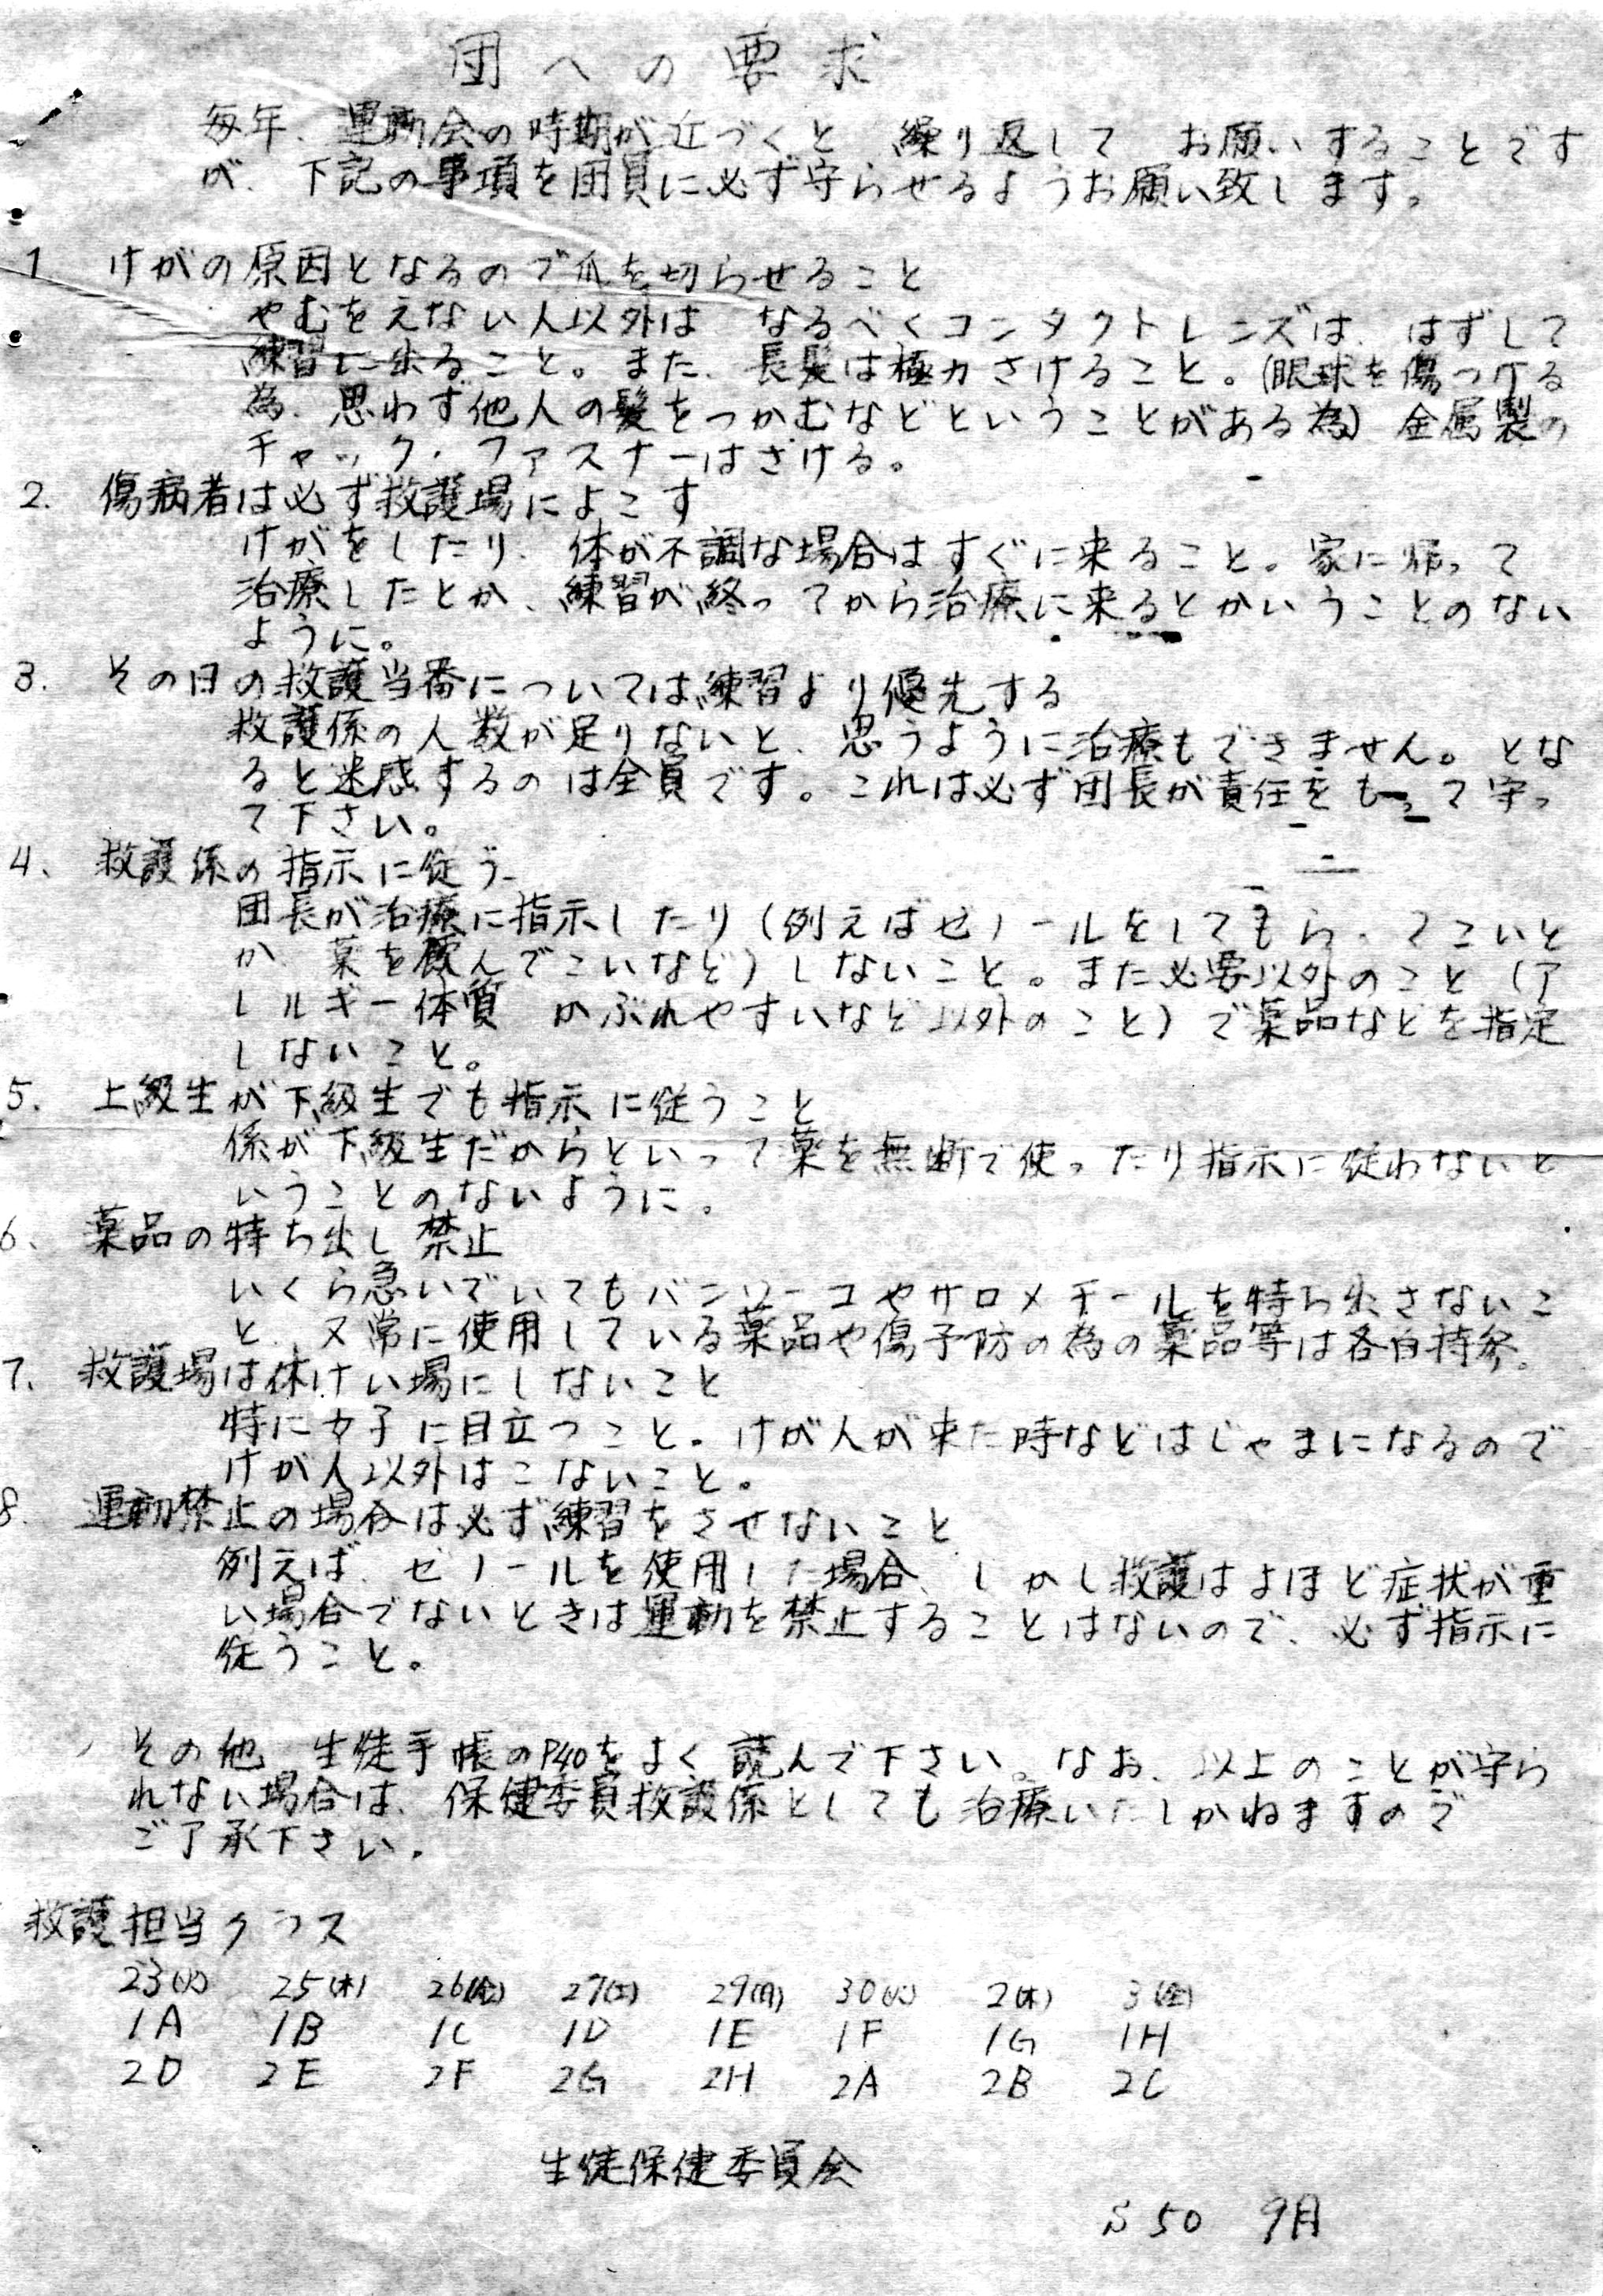 団への要求
毎年、運動会の時期が近づくと 繰り返して お願いすることです
が、下記の事項を団員に必ず守らせるようお願い致します。
1 けがの原因となるので爪を切らせること
やむをえない人以外は なるべくコンタクトレンズは、はずして
練習に出ること。また、長髪は極力さけること。(眼球を傷つける
為、思わず他人の髪をつかむなどということがある為) 金属製の
チャック・ファスナーはさける。
2. 傷病者は必ず救護場によこす
けがをしたり、体が不調な場合はすぐに来ること。家に帰って
治療したとか、練習が終ってから治療に来るとかいうことのない
ように。
3. その日の救護当番については練習より優先する
救護係の人数が足りないと、思うように治療もできません。とな
ると迷惑するのは全員です。これは必ず団長が責任をもって守っ
て下さい。
4、救護係の指示に従う
団長が治療に指示したり(例えばゼノールをしてもらってこいと
か 薬を飲んでこいなど)しないこと。また必要以外のこと(ア
レルギー体質 かぶれやすいなど以外のこと)で薬品などを指定
しないこと。
5. 上級生が下級生でも指示に従うこと
係が下級生だからといって薬を無断で使ったり指示に従わないと
いうことのないように。
6、薬品の持ち出し禁止
いくら急いでいてもバンソーコやサロメチールを持ち出さないこ
と、又常に使用している薬品や傷予防の為の薬品等は各自持参。
7、救護場は休けい場にしないこと
特に女子に目立つこと。けが人が来た時などはじゃまになるので
けが人以外はこないこと。
8. 運動禁止の場合は必ず練習をさせないこと
例えば、ゼノールを使用した場合、しかし救護はよほど症状が重
い場合でないときは運動を禁止することはないので、必ず指示に
従うこと。
その他 生徒手帳のP40をよく読んで下さい。なお、以上のことが守ら
れない場合は、保健委員救護係としても治療いたしかねますので
ご了承下さい。
救護担当クラス
23(火) 25(木) 26(金) 27(土) 29(月) 30(火) 2(木) 3(金)
1A 1B 1C 1D 1E 1F 1G 1H
2D 2E 2F 2G 2H 2A 2B 2C
生徒保健委員会
S50 9月